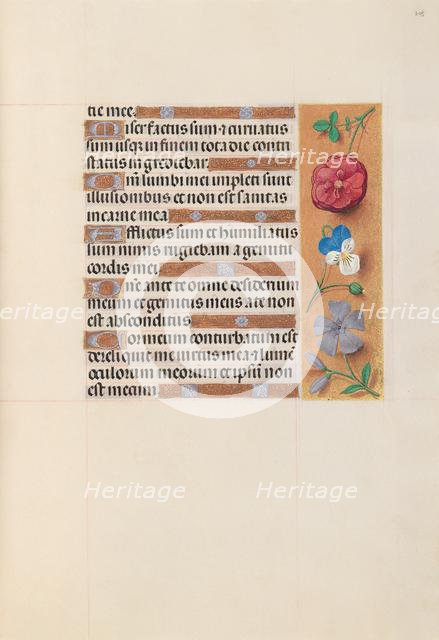 tie mee.
Miser factus sum ⁊ curuatus
sum usq; in finem tota die contri
status ingrediebar.
Qm̄ lumbi mei impleti sunt
illusionibus et non est sanitas
in carne mea
Afflictus sum et humiliatus
sum nimis rugiebam a gemitu
cordis mei
Dn̄e ante te omne desiderium
meum et gemitus meus a te non
est absconditus
Cor meum conturbatum est
dereliquit me uirtus mea ⁊ lumē
oculorum meorum et ipsū non
est mecum
Heritage
Heritage
Heritage
Heritage
Heritage
Heritage